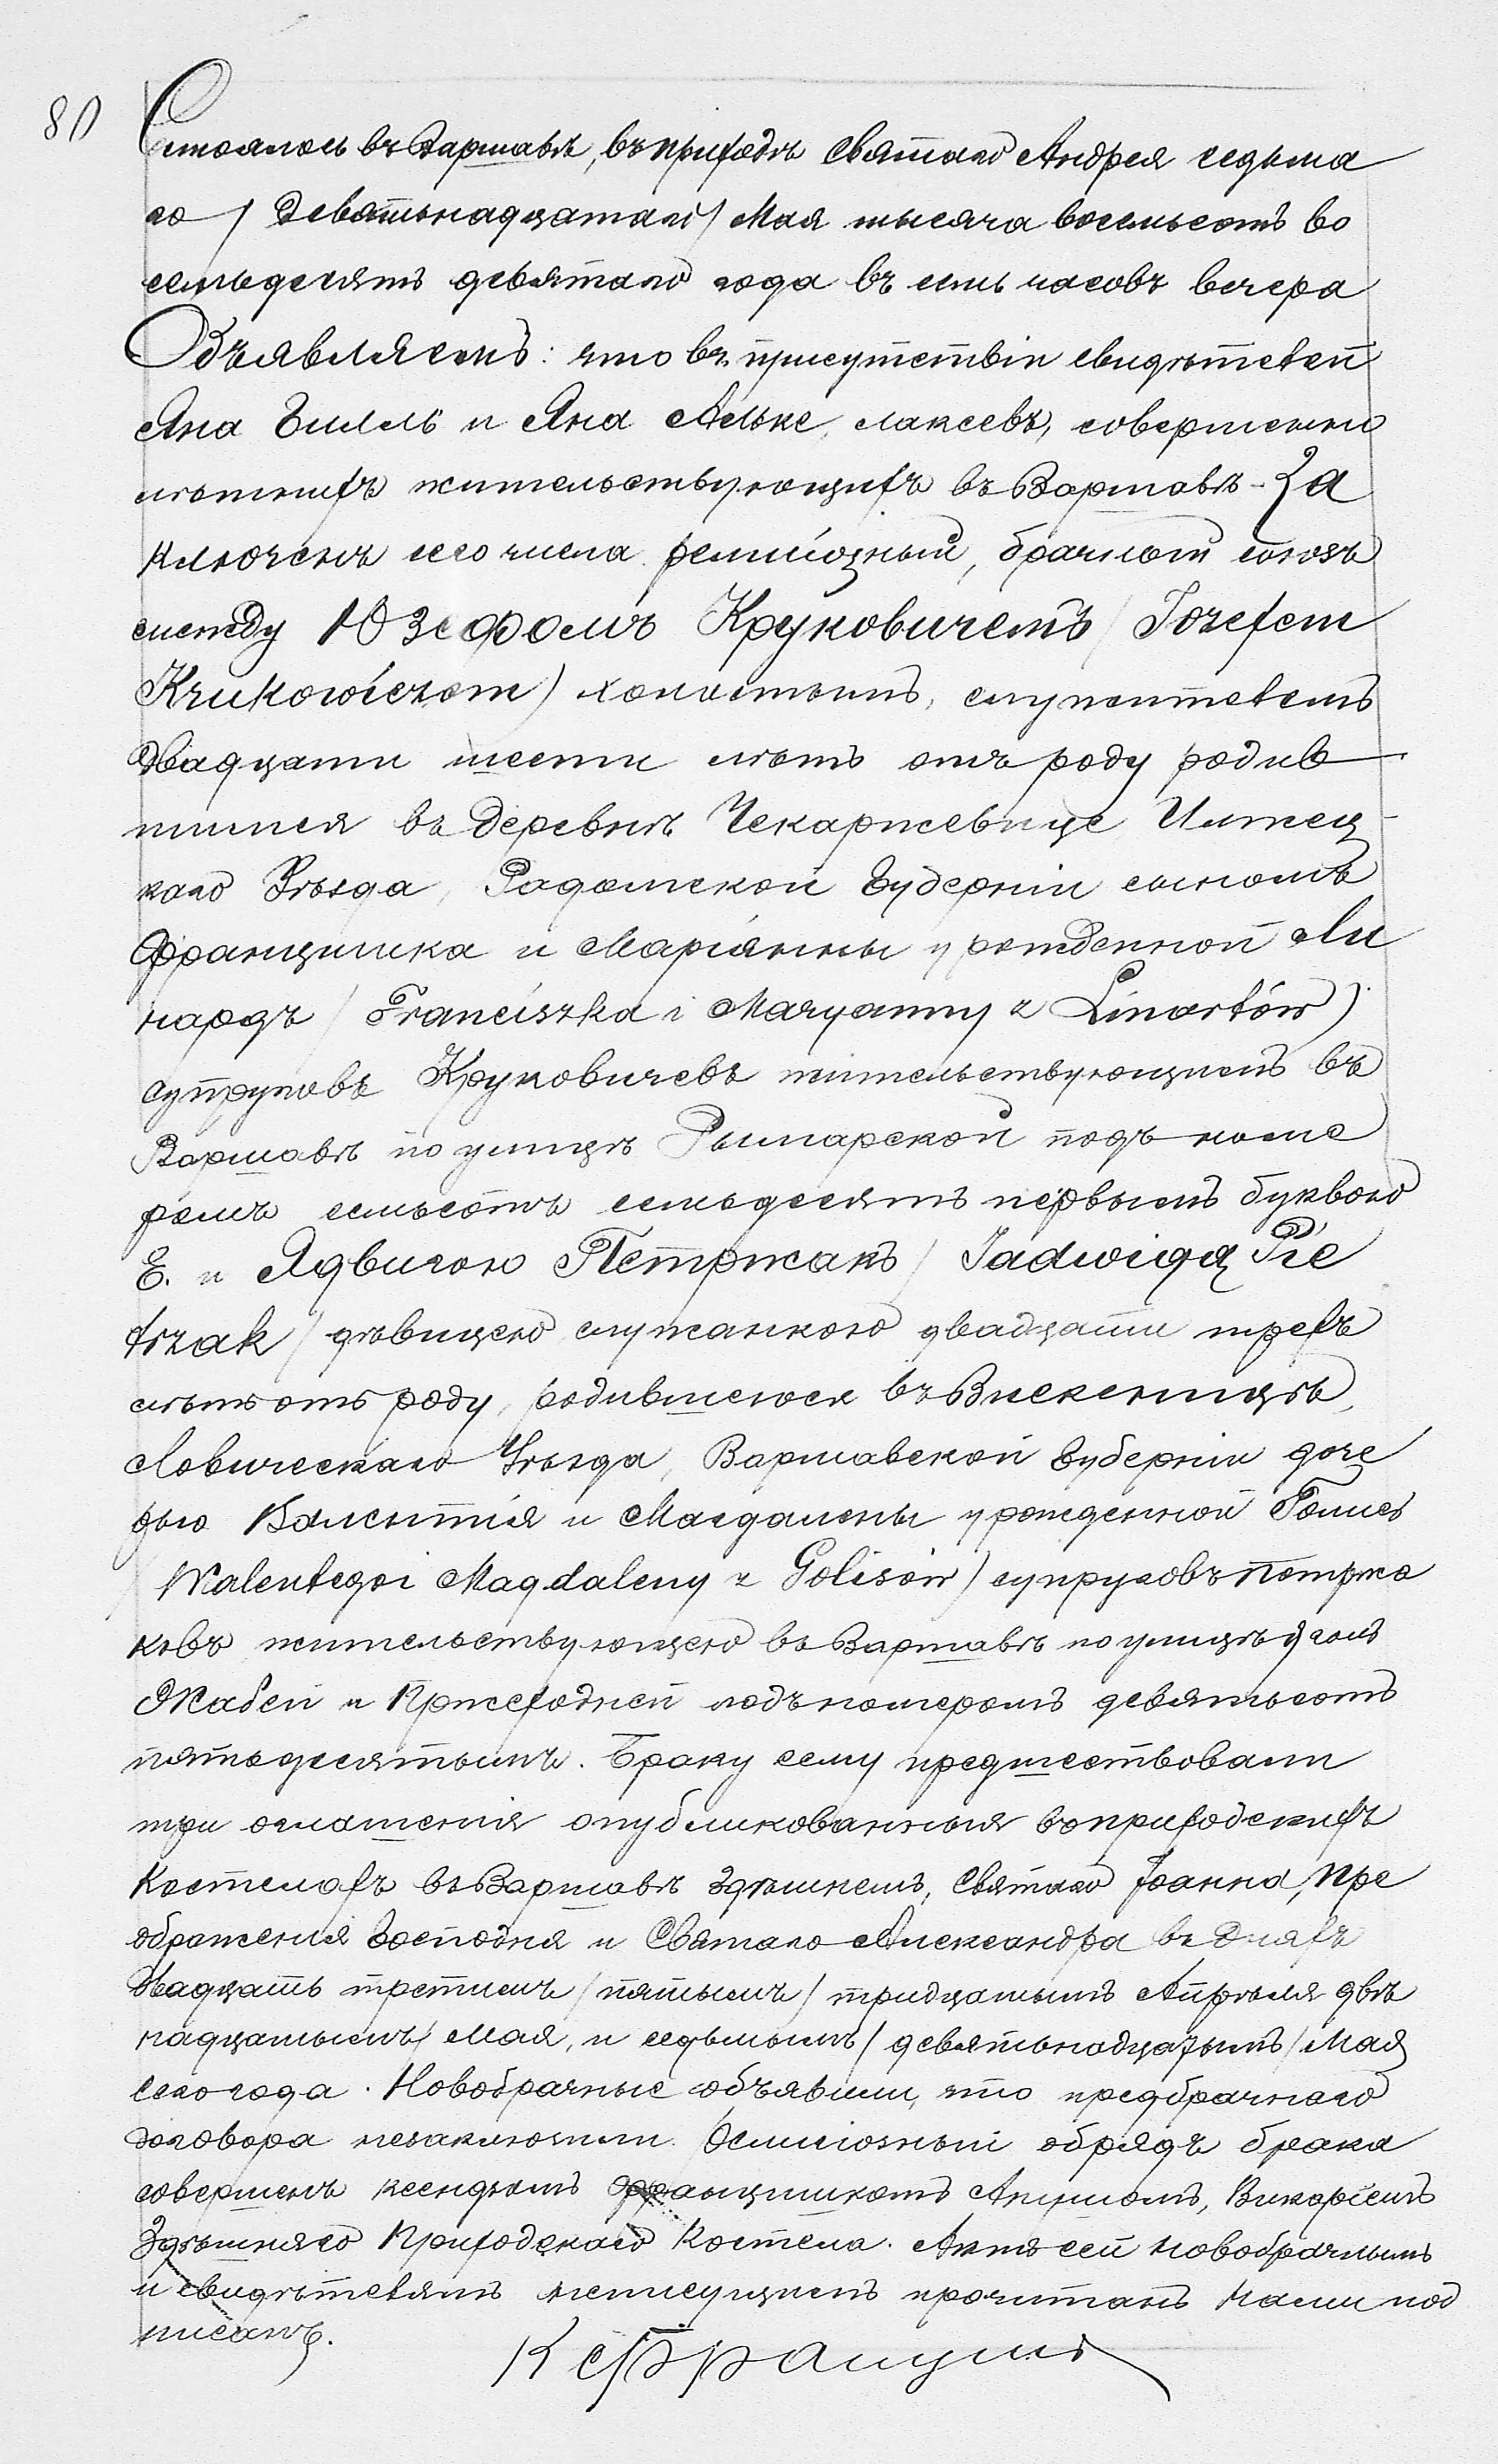 80
Состоялось въ Варшавѣ, въ приходѣ Святаго Андрея седьма
го / девятьнадцатаго / Мая тысяча восемьсотъ во
семьдесятъ девятаго года въ семь часовъ вечера
Объявляемъ: что въ присутствіи свидѣтелей
Яна Гилль и Яна Яльке, лакеевъ, совершенно
лѣтнихъ жительствующихъ въ Варшавѣ - За
ключенъ сего числа религіозный, брачный союзъ
между Юзефомъ Круковичемъ / Józefem
Krukowiczem) холостымъ, служителемъ
двадцати шести лѣтъ отъ роду родив
шимся въ деревнѣ Чекаржевице Илжец-
каго Уѣзда, Радомской Губерніи сыномъ
Францишка и Маріянны урожденной Ли
нардъ / Franciszka i Maryanny z Linartów)
супруговъ Круковичевъ жительствующимъ въ
Варшавѣ по улицѣ Рымарской подъ номе
ромъ семьсотъ семьдесятъ первымъ буквою
Е. и Ядвигою Петржакъ / Jadwigą Pie
trzak / дѣвицею служанкою двадцати трехъ
лѣтъ отъ роду, родившеюся въ Вискеницѣ,
Ловическаго Уѣзда, Варшавской Губерніи доче
рью Валентія и Магдалены урожденной Голисъ
/ Walentego i Magdaleny z Golisów) супруговъ Петржа
ковъ жительствующею въ Варшавѣ по улицѣ уголъ
Жабей и Пржеходней подъ номеромъ девятьсотъ
пятьдесятымъ. Браку сему предшествовали
три оглашенія опубликованныя въ приходскихъ
Костелахъ въ Варшавѣ здѣшнемъ, Святаго Іоанна, Пре
ображенія Господня и Святаго Александра въ дняхъ
двадцать третьемъ / пятымъ / тридцатымъ Апрѣля двѣ
надцатымъ / Мая, и седьмымъ / девятьнадцатымъ / Мая
сего года. Новобрачные объявили, что предбрачнаго
договора незаключили. Религіозный обрядъ брака
совершенъ ксендзомъ Францишкомъ, Викаріемъ
Здѣшняго Приходскаго Костела. Актъ сей новобрачнымъ
и свидѣтелямъ неписущимъ прочитанъ Нами под
писанъ.